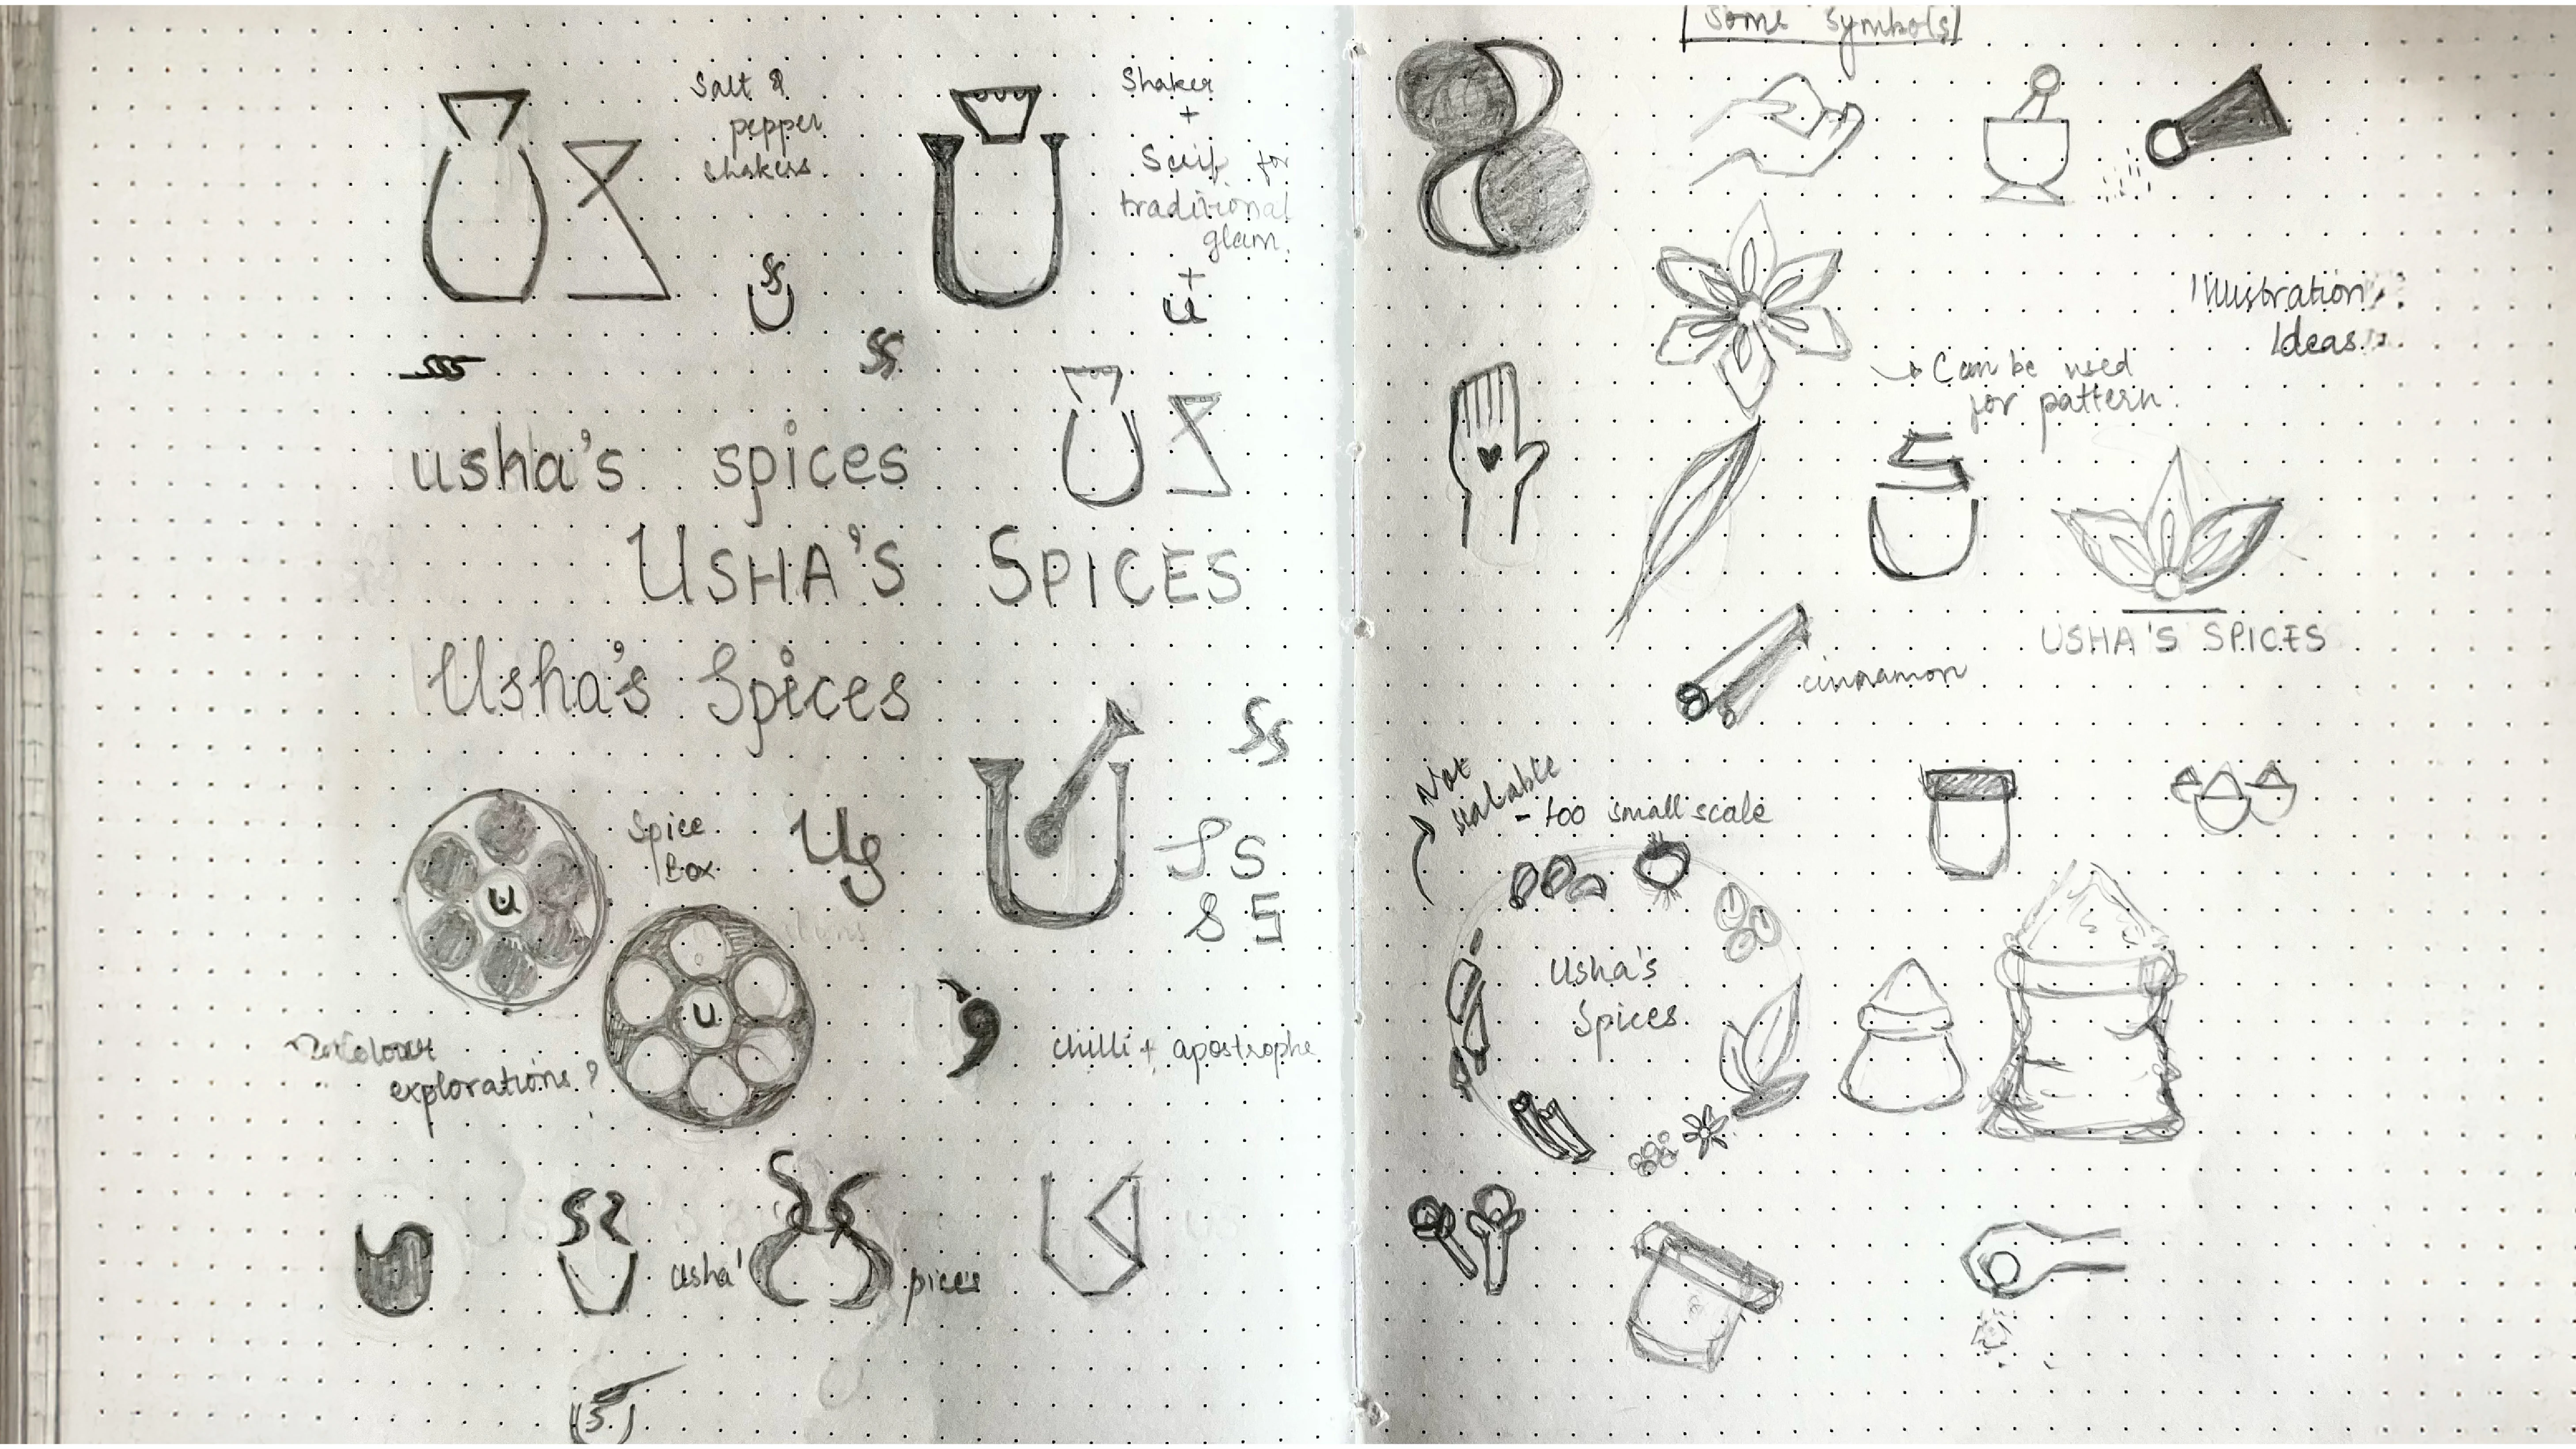 Salt &
pepper
shakers
Shaker
+
Serif for
traditional
glam.
+
u
usha's spices
USHA'S SPICES
Usha's Spices
Spice
Box
Us
S S
8 S
u
u
colour
explorations?
chilli + apostrophe
usha'
pices
Some Symbols
Illustration
Ideas
Can be used
for pattern.
USHA'S SPICES
cinnamon
Not
scalable
- too small scale
Usha's
Spices